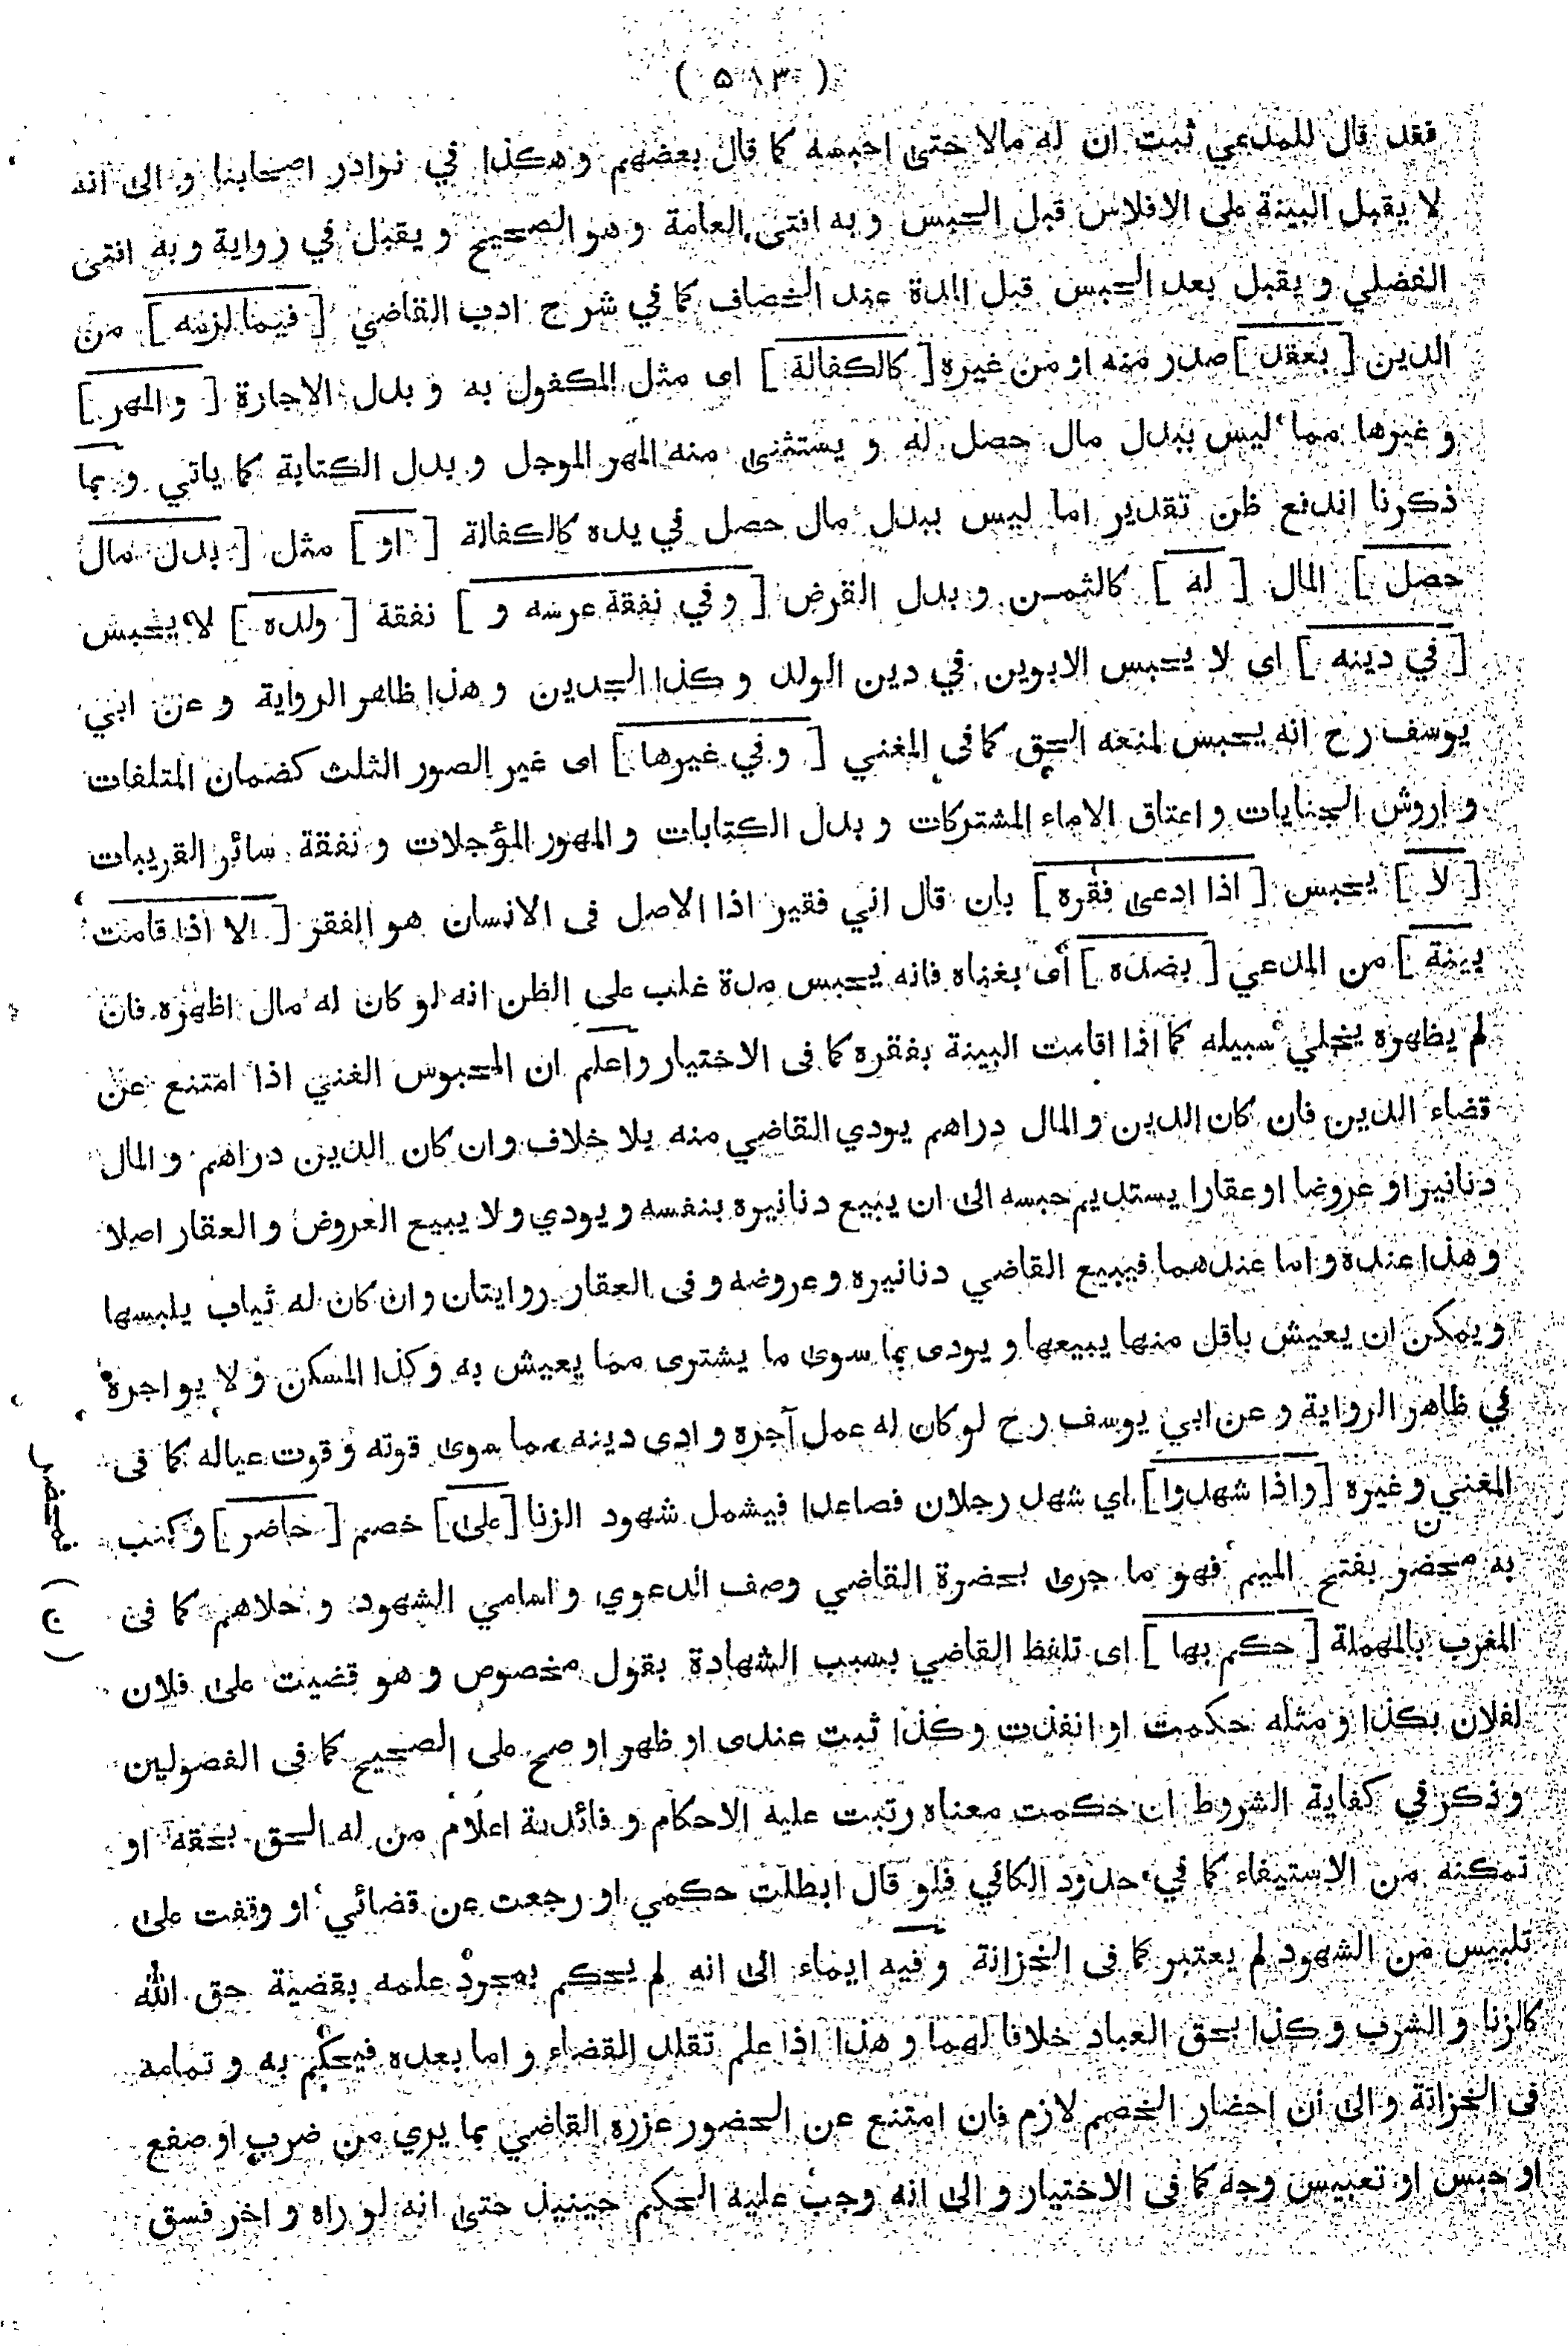 ( ۵۸۳ )
فقد قال للمدعي ثبت ان له مالا حتى احبسه كما قال بعضهم وهكذا في نوادر اصحابنا و الى انه
لا يقبل البينة على الافلاس قبل الحبس و به افتى العامة و هو الصحيح و يقبل في رواية و به افتى
الفضلي و يقبل بعد الحبس قبل المدة عند الخصاف كما في شرح ادب القاضي [ فيما لزمه ] من
الدين [ بعقد ] صدر منه او من غيره [ كالكفالة ] اى مثل المكفول به و بدل الاجارة [ و المهر ]
و غيرها مما ليس ببدل مال حصل له و يستثنى منه المهر الموجل و بدل الكتابة كما ياتي و بما
ذكرنا اندفع ظن تقدير اما ليس ببدل مال حصل في يده كالكفالة [ او ] مثل [ بدل مال
حصل ] المال [ له ] كالثمن و بدل القرض [ و في نفقة عرسه و ] نفقة [ ولده ] لا يحبس
[ في دينه ] اى لا يحبس الابوين في دين الولد و كذا الجدين و هذا ظاهر الرواية و عن ابي
يوسف رح انه يحبس لمنعه الحق كما فى المغني [ و في غيرها ] اى غير الصور الثلث كضمان المتلفات
و اروش الجنايات و اعتاق الاماء المشتركات و بدل الكتابات و المهور المؤجلات و نفقة سائر القريبات
[ لا ] يحبس [ اذا ادعى فقره ] بان قال اني فقير اذا الاصل فى الانسان هو الفقر [ الا اذا قامت
بينة ] من المدعي [ بضده ] أى بغناه فانه يحبس مدة غلب على الظن انه لو كان له مال اظهره فان
لم يظهره يخلي سبيله كما اذا اقامت البينة بفقره كما فى الاختيار و اعلم ان المحبوس الغني اذا امتنع عن
قضاء الدين فان كان الدين و المال دراهم يودي القاضي منه بلا خلاف و ان كان الدين دراهم و المال
دنانير او عروضا او عقارا يستديم حبسه الى ان يبيع دنانيره بنفسه و يودي و لا يبيع العروض و العقار اصلا
و هذا عنده و اما عندهما فيبيع القاضي دنانيره و عروضه و فى العقار روايتان و ان كان له ثياب يلبسها
و يمكن ان يعيش باقل منها يبيعها و يودى بما سوى ما يشترى مما يعيش به و كذا المسكن و لا يواجره
في ظاهر الرواية و عن ابي يوسف رح لو كان له عمل آجره و ادى دينه مما سوى قوته و قوت عياله كما فى
المغني و غيره [ و اذا شهدوا ] اي شهد رجلان فصاعدا فيشمل شهود الزنا [ على ] خصم [ حاضر ] و كتب
به محضر بفتح الميم فهو ما جرى بحضرة القاضي وصف الدعوي و اسامي الشهود و حلاهم كما فى
المغرب بالمهملة [ حكم بها ] اى تلفظ القاضي بسبب الشهادة بقول مخصوص و هو قضيت على فلان
لفلان بكذا و مثله حكمت او انفذت و كذا ثبت عندى او ظهر او صح على الصحيح كما فى الفصولين
و ذكر في كفاية الشروط ان حكمت معناه رتبت عليه الاحكام و فائدته اعلام من له الحق بحقه او
تمكنه من الاستيفاء كما في حدود الكافي فلو قال ابطلت حكمي او رجعت عن قضائي او وقفت على
تلبيس من الشهود لم يعتبر كما فى الخزانة و فيه ايماء الى انه لم يحكم بمجرد علمه بقضية حق الله
كالزنا و الشرب و كذا بحق العباد خلافا لهما و هذا اذا علم تقلد القضاء و اما بعده فيحكم به و تمامه
فى الخزانة و الى أن احضار الخصم لازم فان امتنع عن الحضور عزره القاضي بما يري من ضرب او صفع
او حبس او تعبيس وجه كما فى الاختيار و الى انه وجب عليه الحكم حينئذ حتى انه لو راه و اخر فسق
فمحضر
( ن )